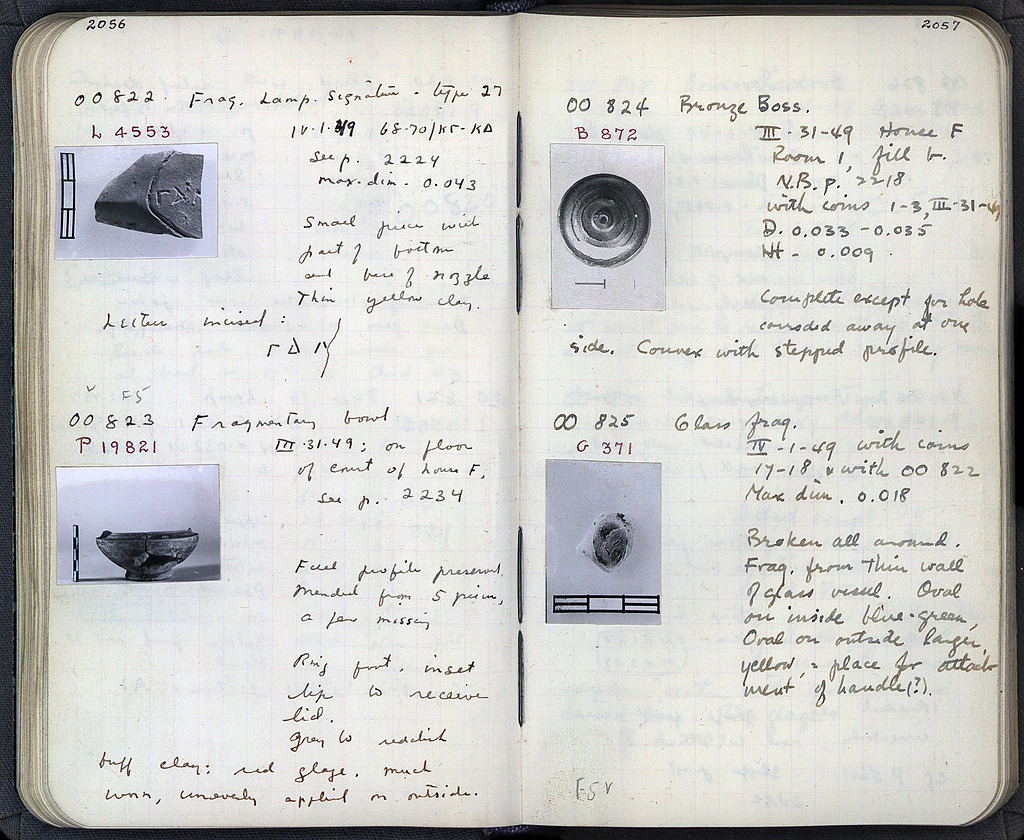 2056
OO 822. Frag. Lamp. Signature - type 27
L 4553
IV·1·49 68-70/ΚΓ-ΚΔ
See p. 2224
max. dim. 0.043
Small piece with
part of bottom
and base of nozzle
Thin yellow clay.
Letters incised:
Γ Δ Ι
F5
OO 823 Fragmentary bowl
P 19821
III·31·49; on floor
of court of house F,
see p. 2234
Full profile preserved,
mended from 5 pieces,
a few missing
Ring foot, inset
lip to receive
lid.
Gray to reddish
buff clay: red glaze, much
worn, unevenly applied on outside.
2057
OO 824 Bronze Boss.
B 872
III·31-49 House F
Room 1, fill b.
N.B. p. 2218
with coins 1-3, III-31-49
D. 0.033-0.035
Ht. 0.009.
Complete except for hole
corroded away at one
side. Convex with stepped profile.
OO 825 Glass frag.
G 371
IV·1-49 with coins
17-18 & with OO 822
Max dim. 0.018
Broken all around.
Frag. from thin wall
of glass vessel. Oval
on inside blue-green,
Oval on outside larger,
yellow, = place for attach
ment of handle(?).
F5